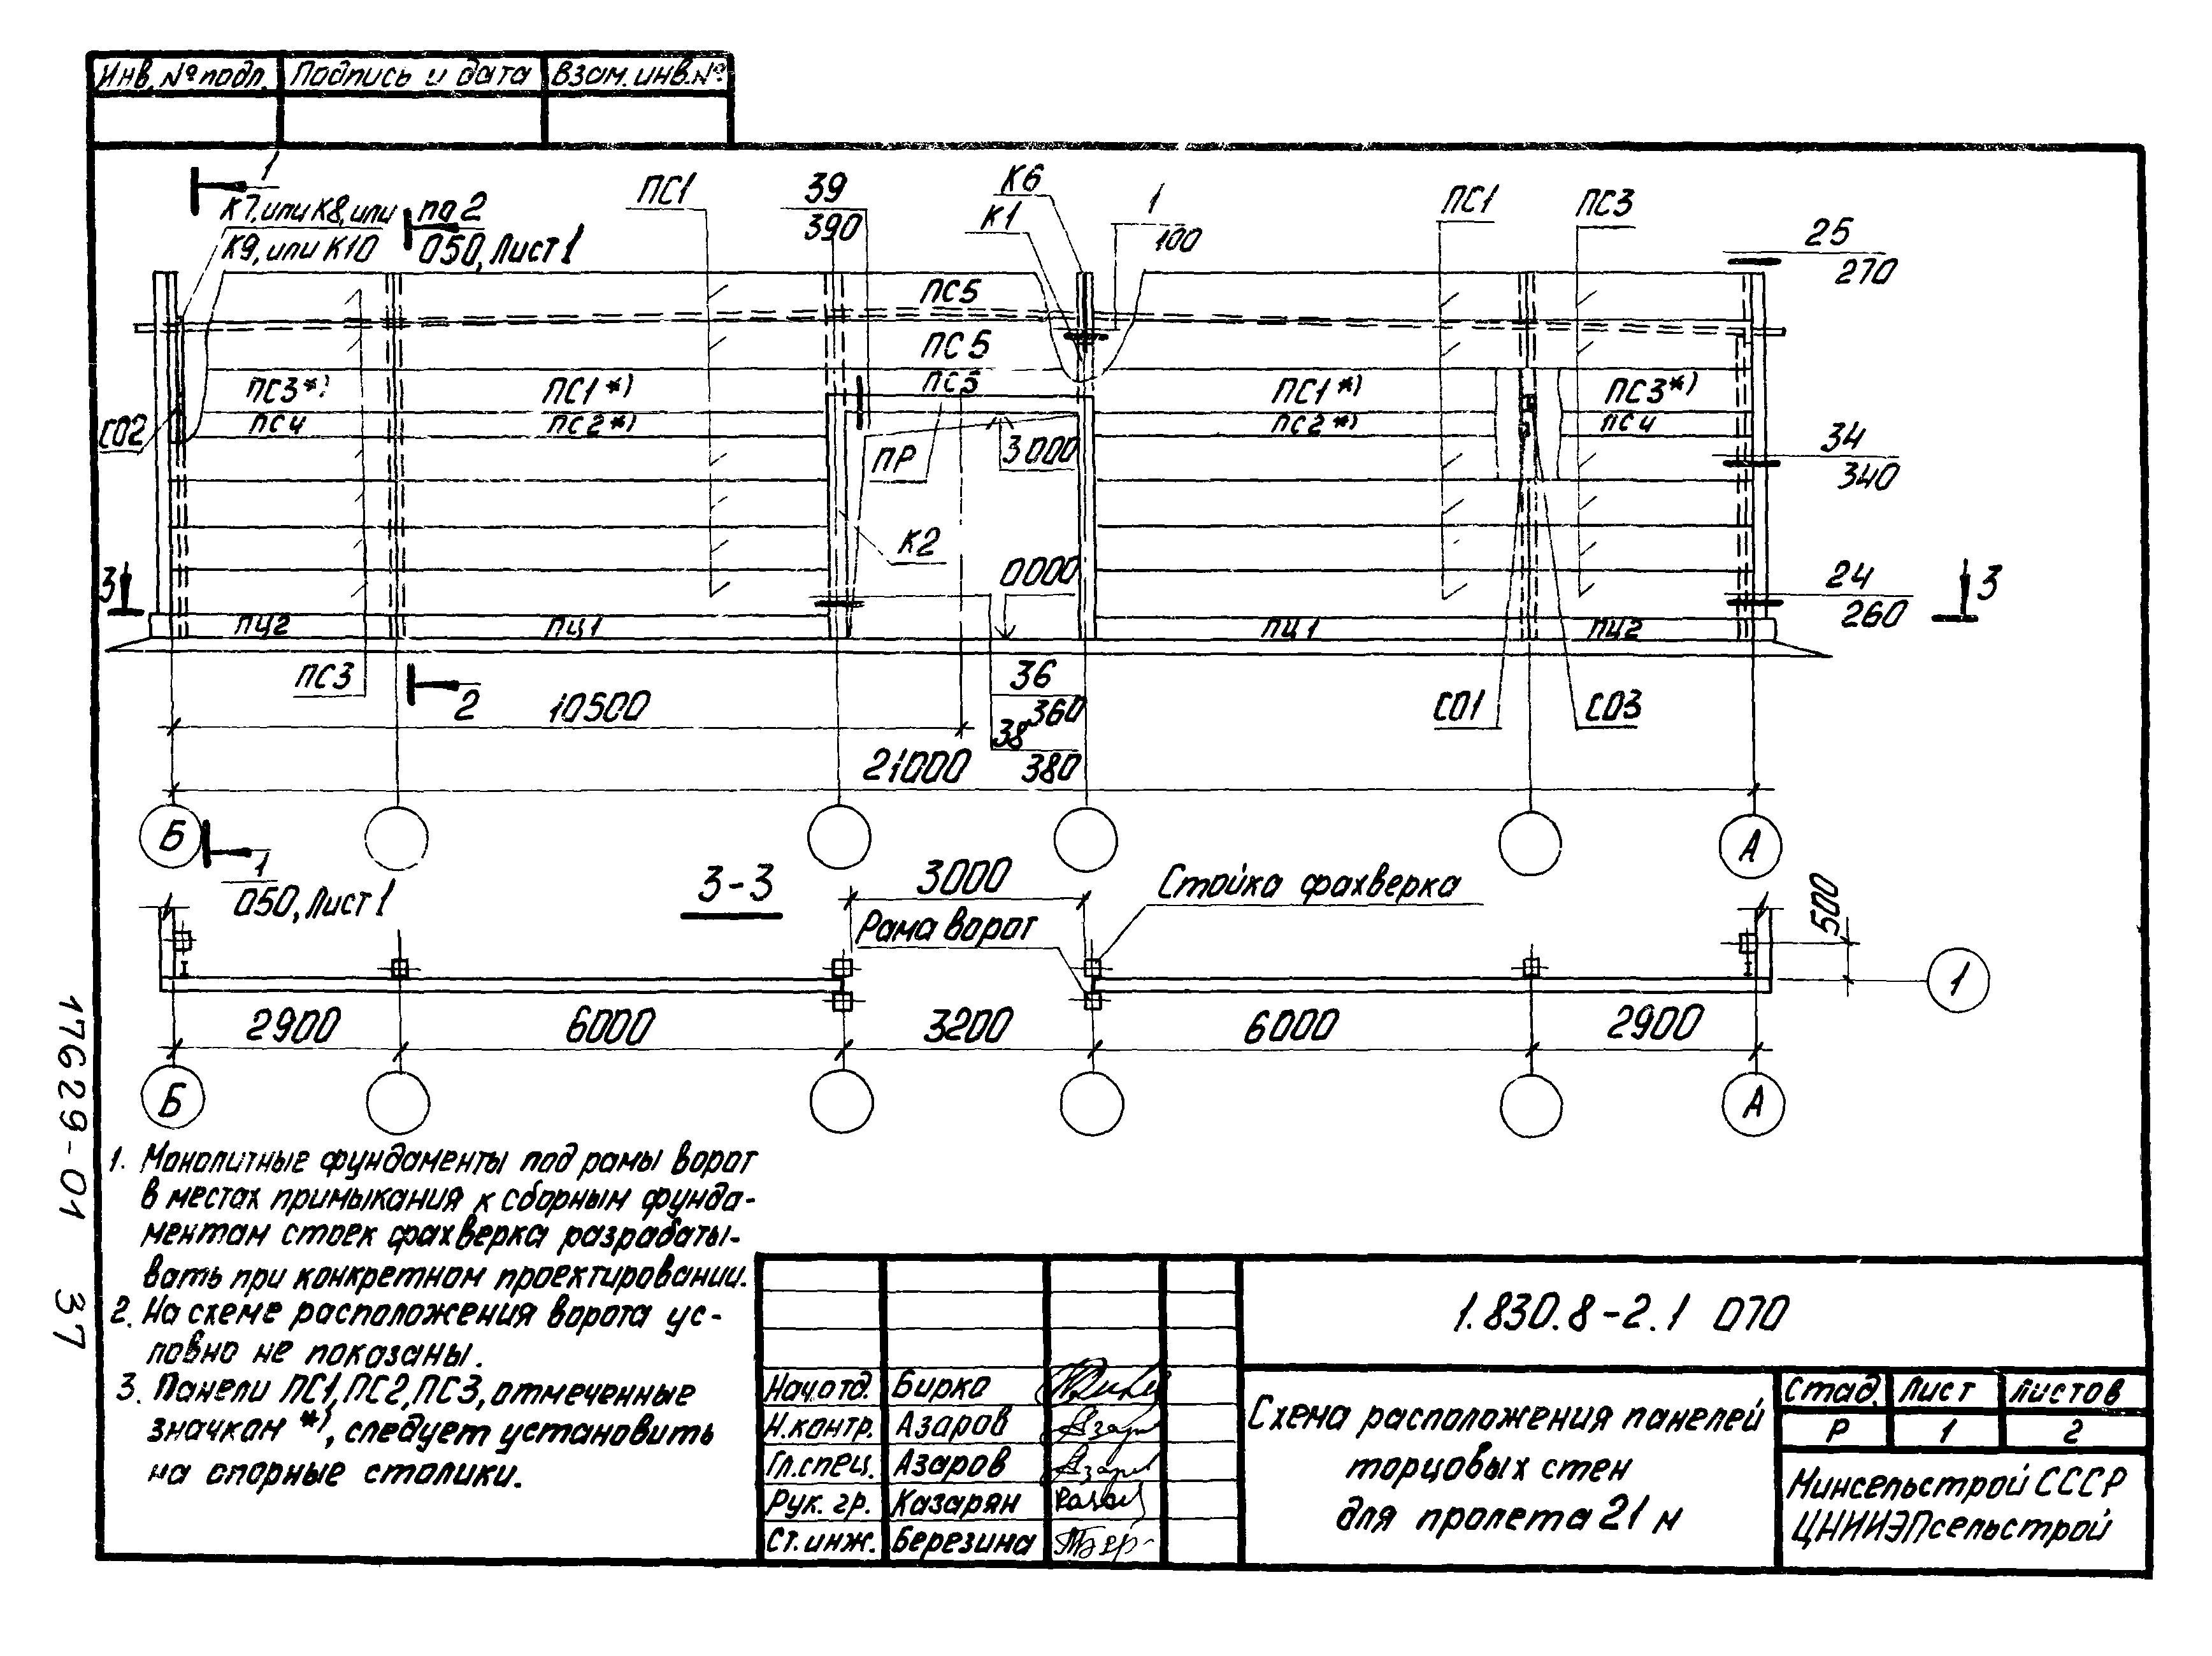 Инв. № подл. Подпись и дата Взам. инв. №
1
К7, или К8, или
К9, или К10
по 2
050, Лист 1
ПС1
39
390
К6
К1
1
100
ПС1
ПС3
25
270
ПС5
ПС5
ПС5
ПС3*)
ПС4
ПС1*)
ПС2*)
ПС1*)
ПС2*)
ПС3*)
ПС4
СО2
ПР
3000
34
340
К2
0000
3
24
260
3
ПЦ2
ПЦ1
ПЦ1
ПЦ2
ПС3
2
36
360
38
380
СО1
СО3
10500
21000
Б
А
1
050, Лист 1
3-3
3000
Стойка фахверка
Рама ворот
500
1
2900
6000
3200
6000
2900
Б
А
1. Монолитные фундаменты под рамы ворот
в местах примыкания к сборным фунда-
ментам стоек фахверка разрабаты-
вать при конкретном проектировании.
2. На схеме расположения ворота ус-
ловно не показаны.
3. Панели ПС1, ПС2, ПС3, отмеченные
значком *), следует установить
на опорные столики.
17629-01 37
1.830.8-2.1 070
Нач.отд. Бирко
Н.контр. Азаров
Гл.спец. Азаров
Рук. гр. Казарян
Ст.инж. Березина
Схема расположения панелей
торцовых стен
для пролета 21 м
Стад. Лист Листов
Р 1 2
Минсельстрой СССР
ЦНИИЭПсельстрой